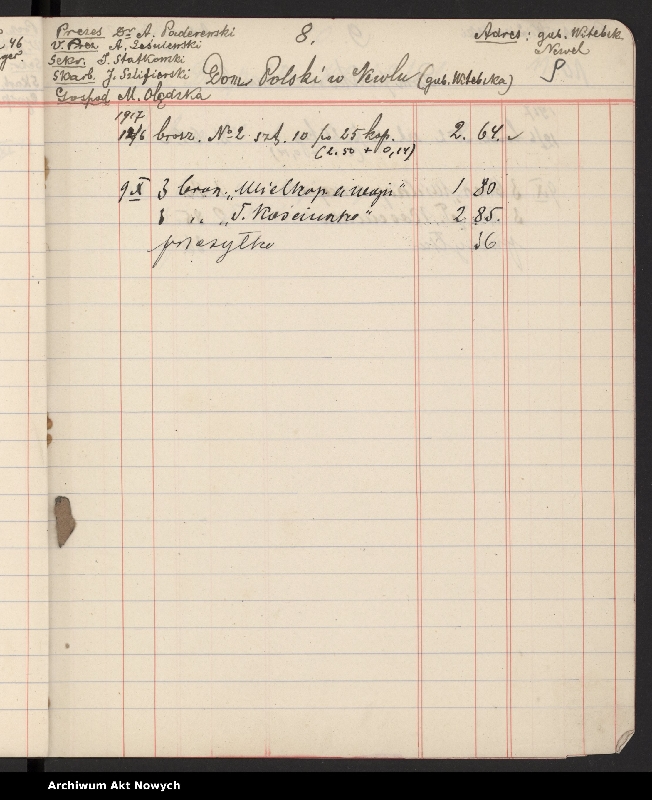 46
Prezes Dr A. Paderewski
V. Prez. A. Leśniewski
Sekr. S. Statkowski
Skarb. J. Szlifierski
Gospod M. Olędzka
8.
Dom Polski w Newlu (gub. Witebska)
Adres: gub. Witebsk
Newel
1917
12/6 brosz. No 2 szt. 10 po 25 kop. 2. 64.
(2.50 + 0,14)
9 X 3 brosz. „ 1 80
3 „ „T. Kościuszko" 2 85.
przesyłka 36
Archiwum Akt Nowych